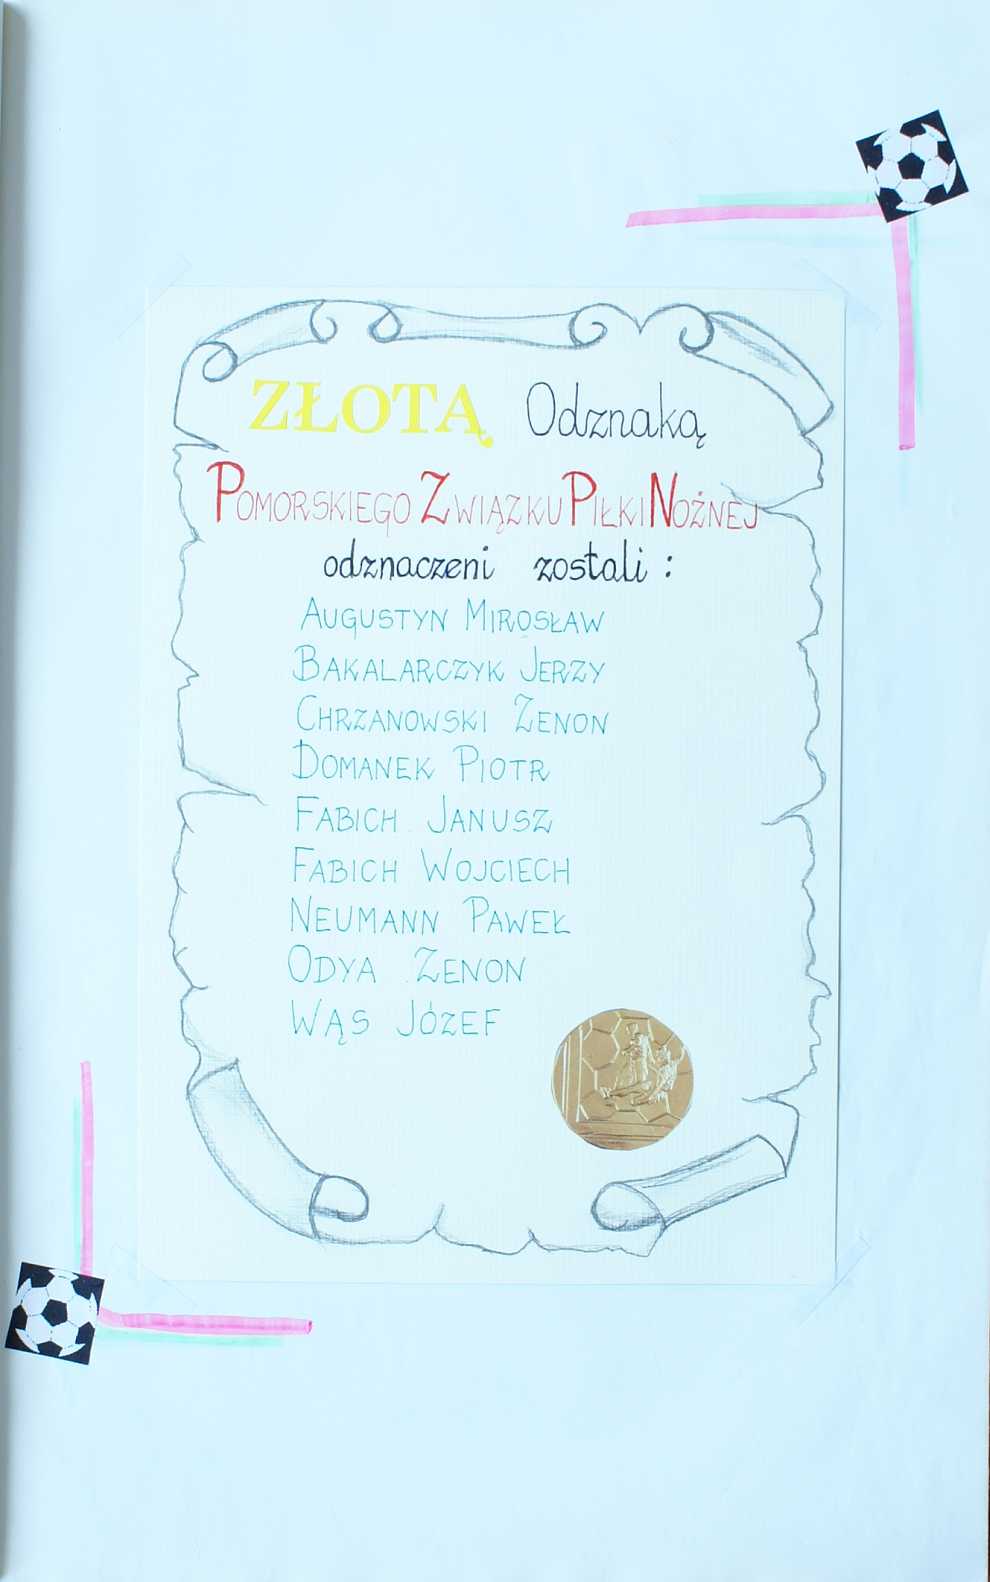 ZŁOTĄ Odznaką
POMORSKIEGO ZWIĄZKU PIŁKI NOŻNEJ
odznaczeni zostali :
AUGUSTYN MIROSŁAW
BAKALARCZYK JERZY
CHRZANOWSKI ZENON
DOMANEK PIOTR
FABICH JANUSZ
FABICH WOJCIECH
NEUMANN PAWEŁ
ODYA ZENON
WĄS JÓZEF